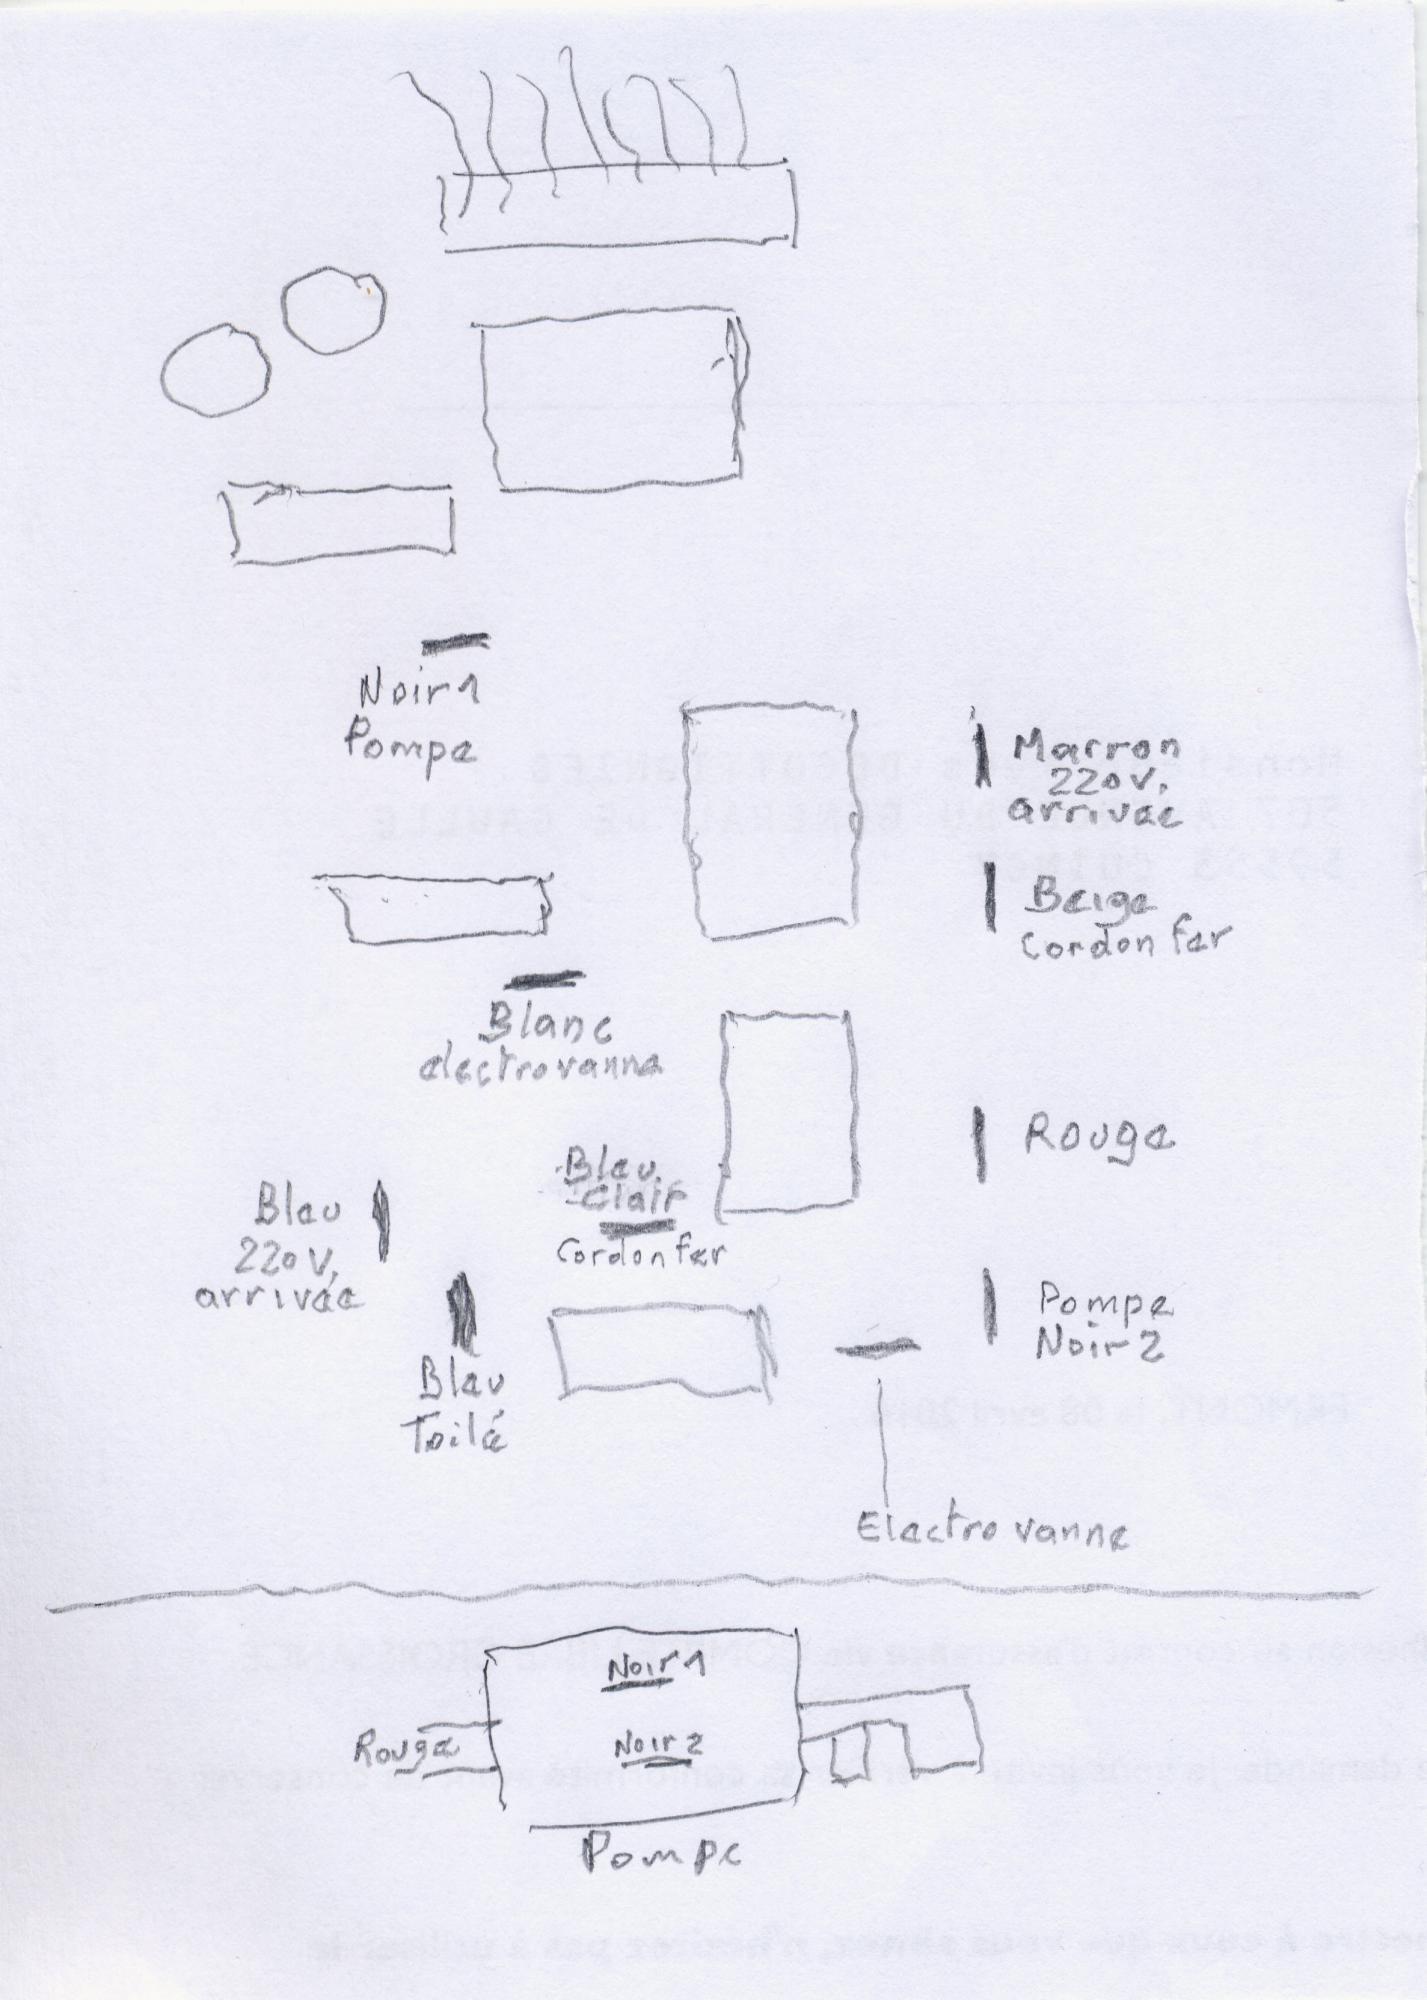 Noir 1
Pompe
Marron
220v.
arrivée
Beige
Cordon fer
Blanc
electrovanne
Rouge
Bleu
Clair
Cordon fer
Bleu
220v.
arrivée
Bleu
Toilé
Pompe
Noir 2
Electrovanne
Noir 1
Rouge
Noir 2
Pompe